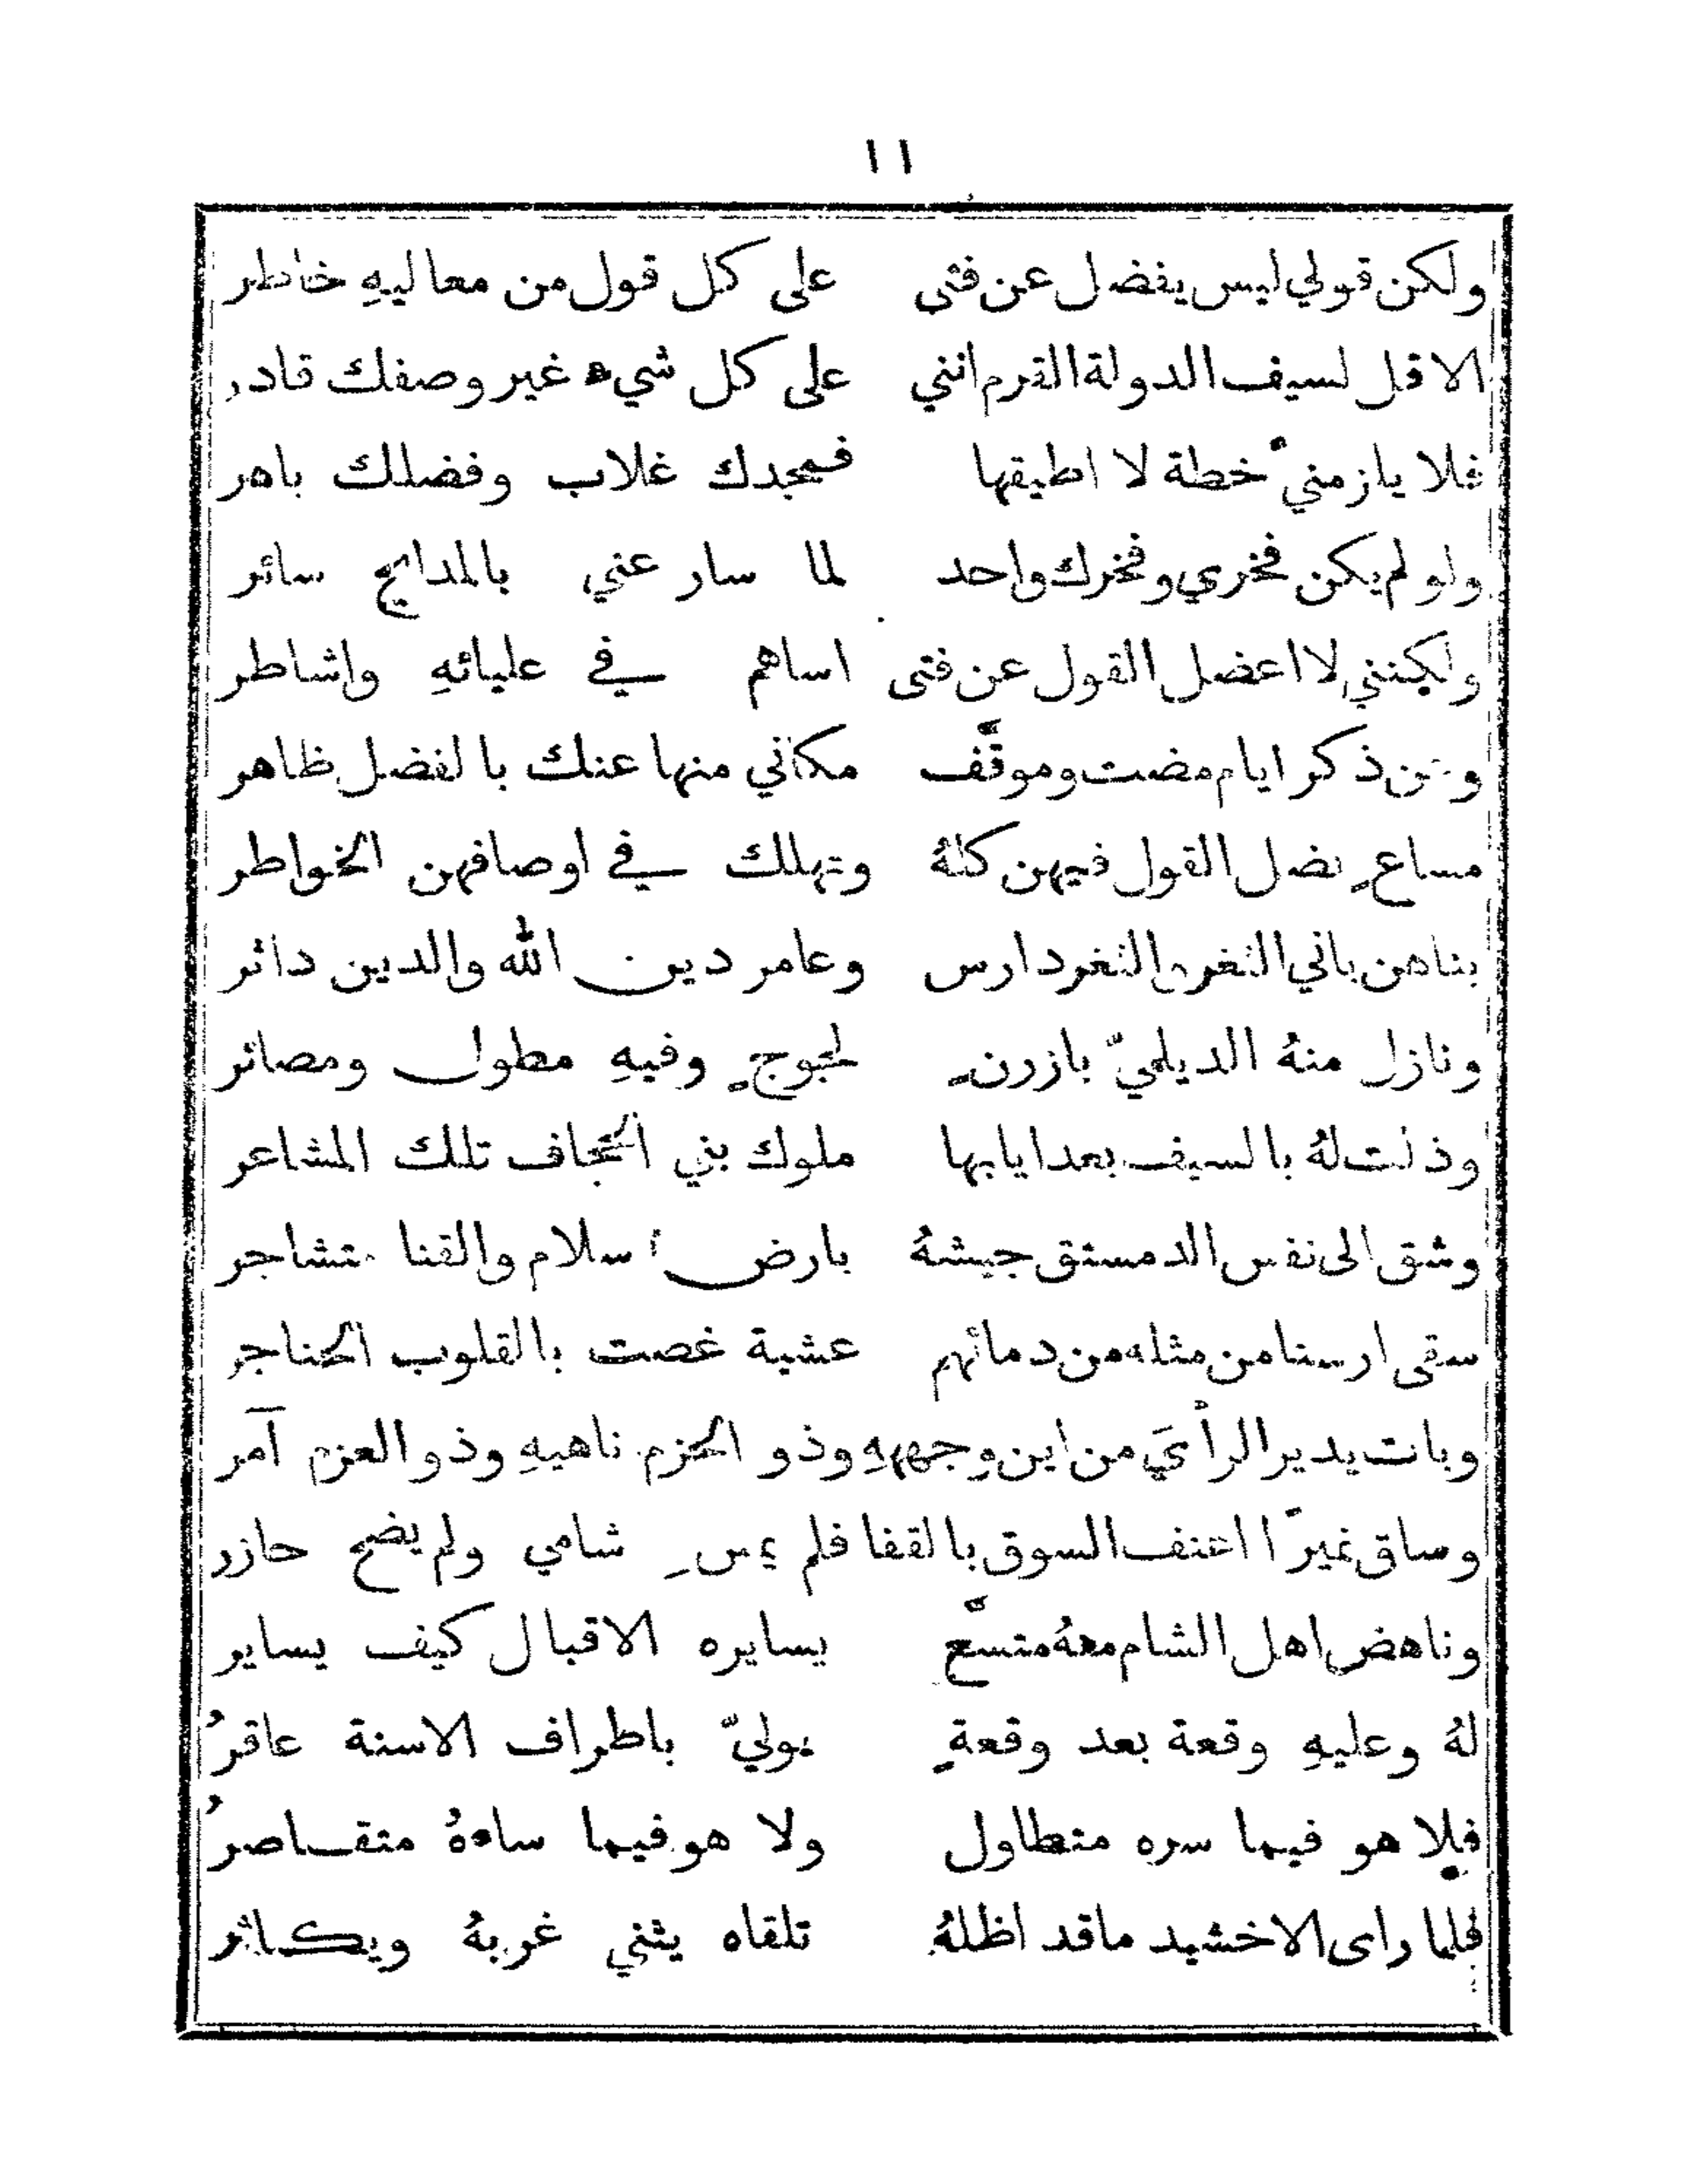 ١١
ولكن قولي ليس يفضل عن فتى على كل قول من معاليهِ خاطر
الا قل لسيف الدولة القرم انني على كل شيء غير وصفك قادر
فلا يلزمنيّ خطة لا اطيقها فمجدك غلاب وفضلك باهر
ولو لم يكن فخري وفخرك واحد لما سار عني بالمدايح سائر
ولكنني لا اعضل القول عن فتى اساهم في عليائهِ واشاطر
وعن ذكر ايام مضت وموقَّف مكاني منها عنك بالفضل ظاهر
مساعٍ يضل القول فيهن كلهُ وتهلك في اوصافهن الخواطر
بناهن باني الثغر والثغر دارس وعامر دين الله والدين داثر
ونازل منهُ الديلميّ بازرنٍ لجوجٍ وفيهِ مطول ومصائر
وذلت لهُ بالسيف بعد ايابها ملوك بني الحجاف تلك المشاعر
وشق الى نفس الدمستق جيشهُ بارض سلام والقنا متشاجر
سقى ارسنا من مثله من دمائهم عشية غصت بالقلوب الحناجر
وبات يدير الرأيَ من اين وجههِ وذو الحزم ناهيهِ وذو العزم آمر
وساق نميرًّا اعنف السوق بالقفا فلم يمسِ شامي ولم يضح حازر
وناهض اهل الشام معهُ متسَّع يسايره الاقبال كيف يساير
لهُ وعليهِ وقعة بعد وقعةٍ يوليّ باطراف الاسنة عاقرُ
فلا هو فيما سره متطاول ولا هو فيما ساءهُ متقاصرُ
فلما راى الاخشيد ما قد اظلهُ تلقاه يثني غربهُ ويكاثر